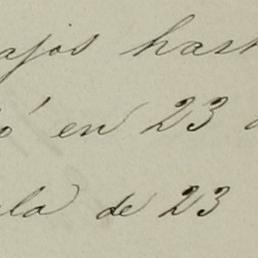 ajos hast
ó en 23 d
la de 23